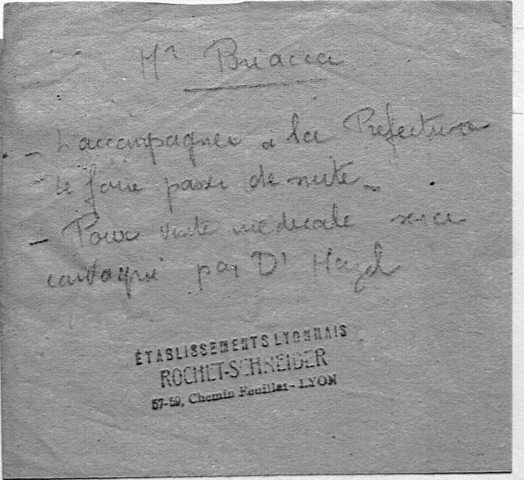 Mr Briacca
- L'accompagner à la Prefecture
Le faire passer de suite -
- Pour visite medicale sera
convoqué par Dr
ÉTABLISSEMENTS LYONNAIS
ROCHET-SCHNEIDER
57-59, Chemin Feuillat - LYON